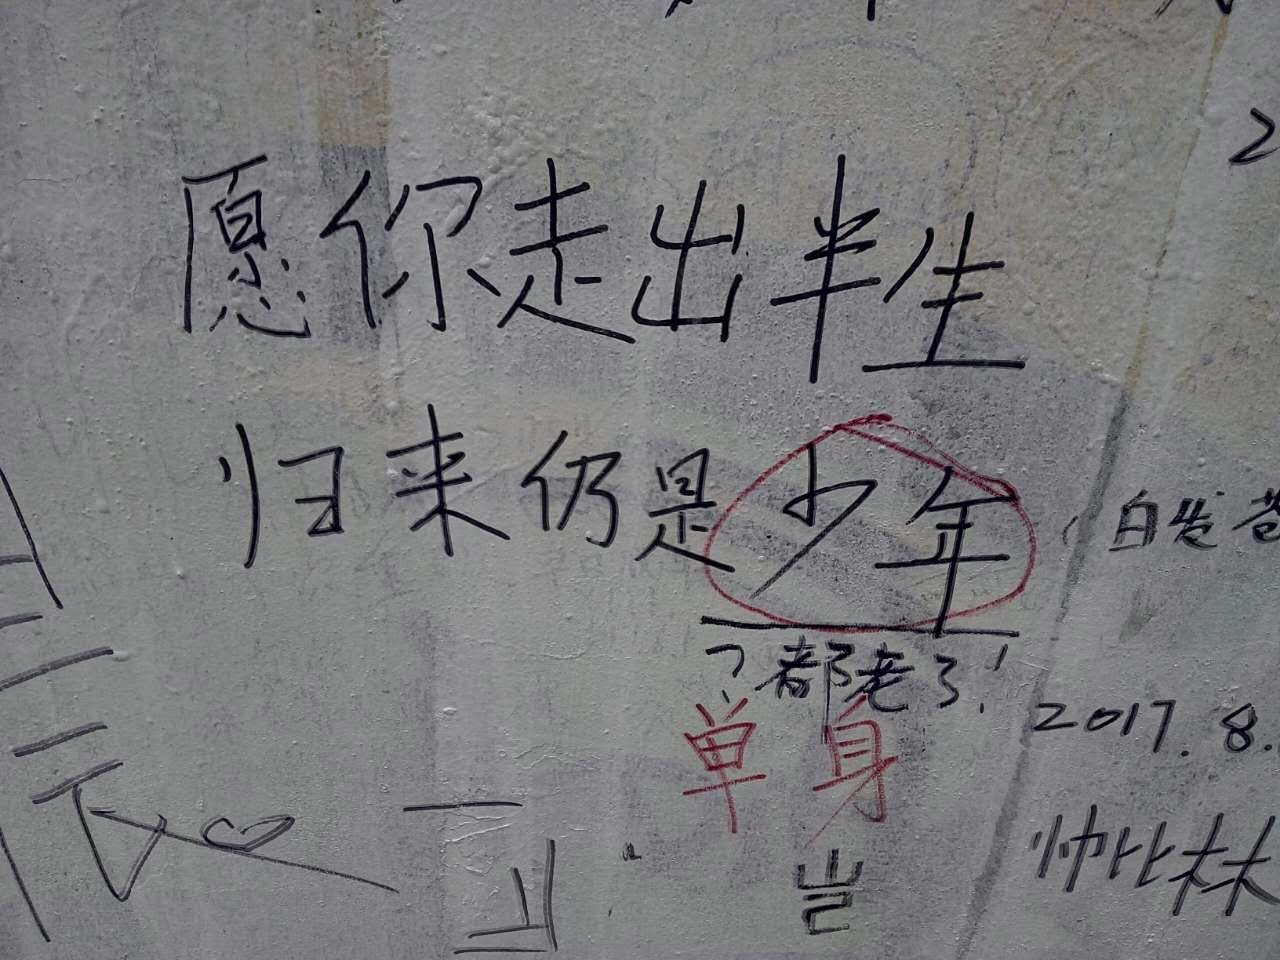 愿你走出半生
归来仍是少年
白发苍
?都老了!
单身
2017.8.
帅比林